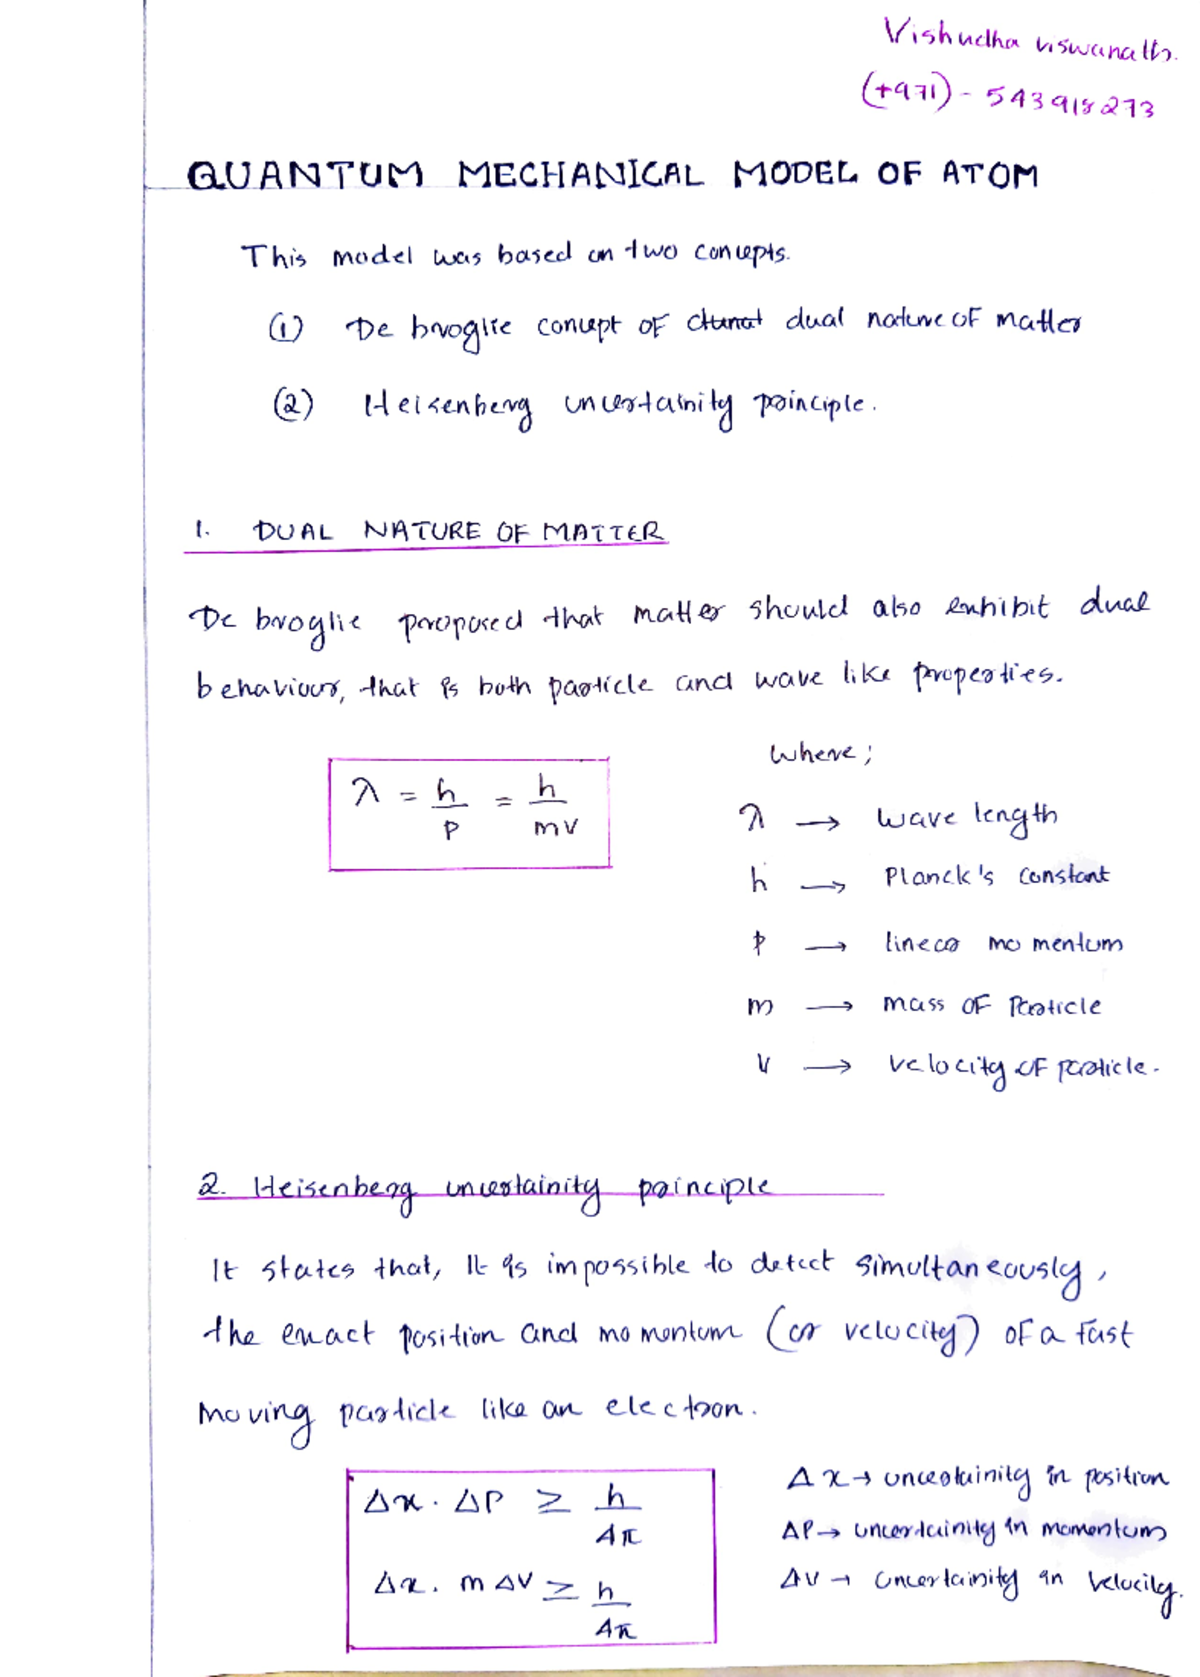 Vishudha viswanath.
(+971) - 543918273
QUANTUM MECHANICAL MODEL OF ATOM
This model was based on two concepts.
(1) De broglie concept of dual nature of matter
(2) Heisenberg uncertainity principle.
1. DUAL NATURE OF MATTER
De broglie proposed that matter should also exhibit dual
behaviour, that is both particle and wave like properties.
where;
λ = h/p = h/mv
λ → wave length
h → Planck's constant
p → linear momentum
m → mass of Particle
v → velocity of particle.
2. Heisenberg uncertainity principle
It states that, It is impossible to detect simultaneously,
the exact position and momentum (or velocity) of a fast
moving particle like an electron.
Δx . ΔP ≥ h/4π
Δx . mΔV ≥ h/4π
Δx → uncertainity in position
ΔP → uncertainity in momentum
ΔV → uncertainity in velocity.